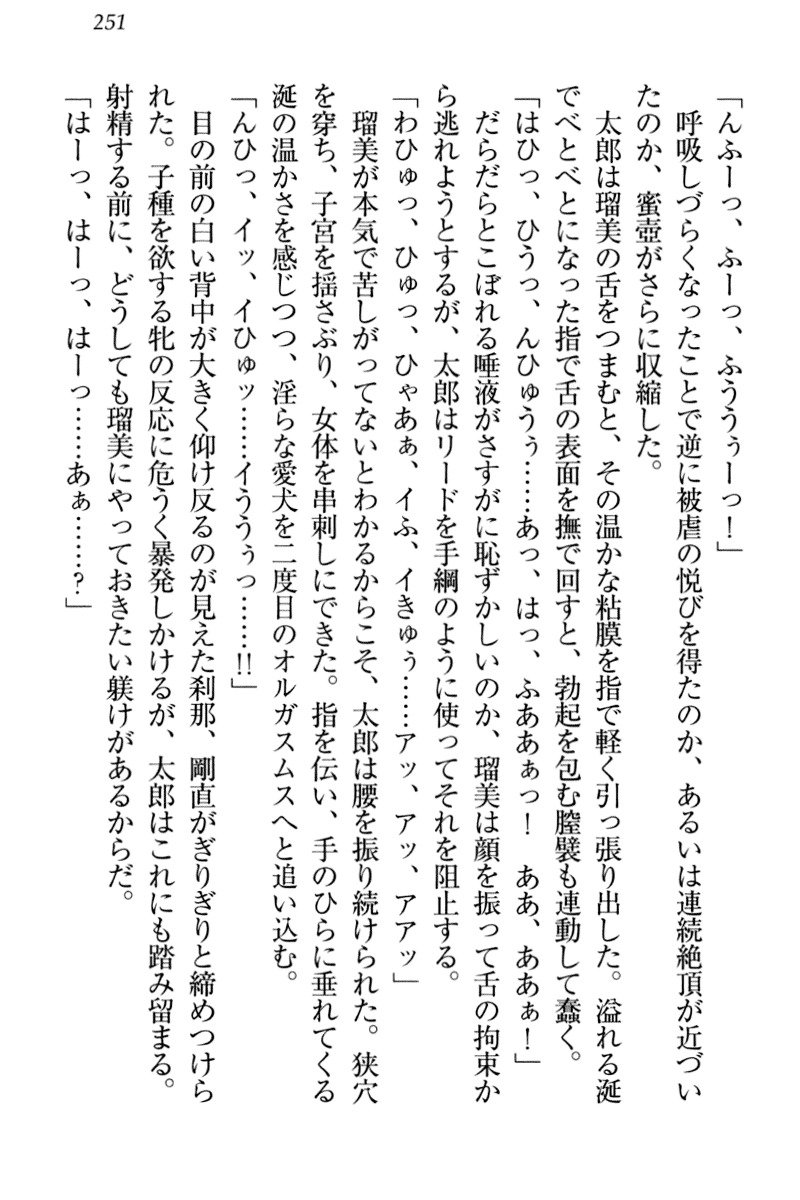 251
「んふーっ、ふーっ、ふううぅーっ！」
　呼吸しづらくなったことで逆に被虐の悦びを得たのか、あるいは連続絶頂が近づい
たのか、蜜壺がさらに収縮した。
　太郎は瑠美の舌をつまむと、その温かな粘膜を指で軽く引っ張り出した。溢れる涎
でべとべとになった指で舌の表面を撫で回すと、勃起を包む膣襞も連動して蠢く。
「はひっ、ひうっ、んひゅうぅ……あっ、はっ、ふああぁっ！　ああ、ああぁ！」
　だらだらとこぼれる唾液がさすがに恥ずかしいのか、瑠美は顔を振って舌の拘束か
ら逃れようとするが、太郎はリードを手綱のように使ってそれを阻止する。
「わひゅっ、ひゅっ、ひゃあぁ、イふ、イきゅぅ……アッ、アッ、アアッ」
　瑠美が本気で苦しがってないとわかるからこそ、太郎は腰を振り続けられた。狭穴
を穿ち、子宮を揺さぶり、女体を串刺しにできた。指を伝い、手のひらに垂れてくる
涎の温かさを感じつつ、淫らな愛犬を二度目のオルガスムスへと追い込む。
「んひっ、イッ、イひゅッ……イううぅっ……!!」
　目の前の白い背中が大きく仰け反るのが見えた刹那、剛直がぎりぎりと締めつけら
れた。子種を欲する牝の反応に危うく暴発しかけるが、太郎はこれにも踏み留まる。
射精する前に、どうしても瑠美にやっておきたい躾けがあるからだ。
「はーっ、はーっ、はーっ……あぁ……？」